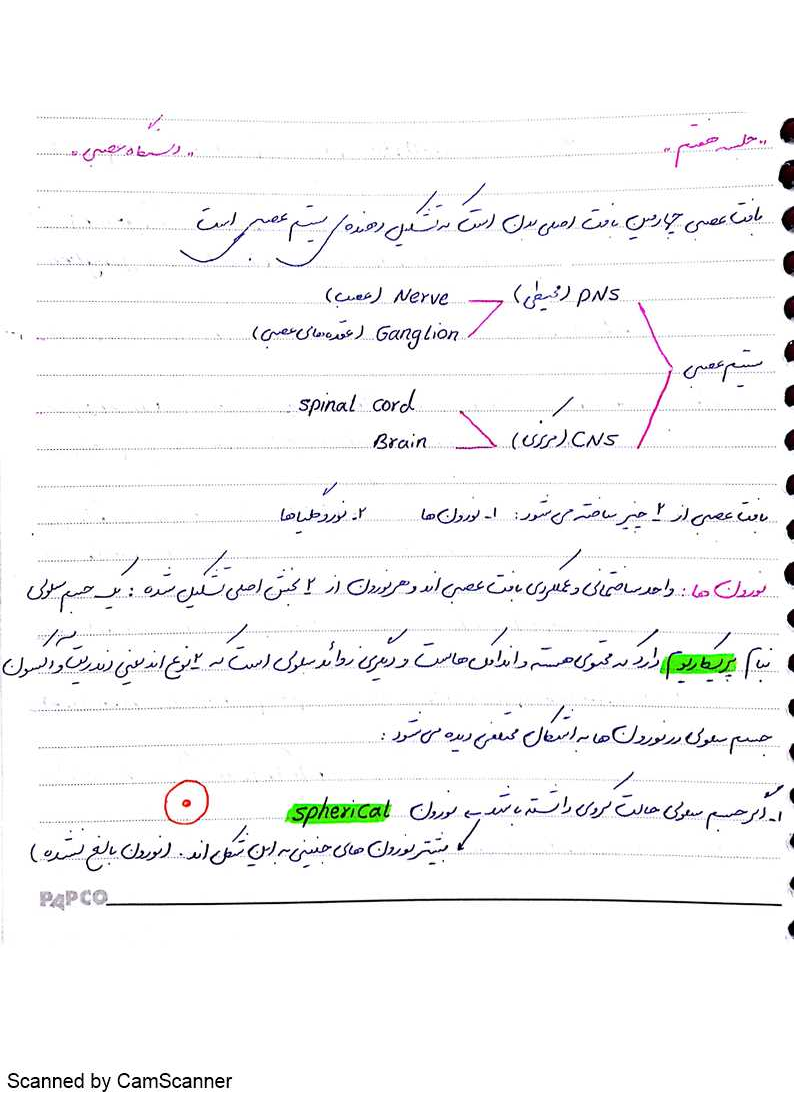 "جلسه هفتم" "دستگاه عصبی"
بافت عصبی چهارمین بافت اصلی بدن است که تشکیل دهنده سیستم عصبی است
PNS (محیطی) Nerve (عصب)
Ganglion (عقده های عصبی)
سیستم عصبی
spinal cord
CNS (مرکزی) Brain
بافت عصبی از ۲ چیز ساخته می شود: ۱- نورون ها ۲- نوروگلیاها
نورون ها: واحد ساختمانی و عملکردی بافت عصبی اند و هر نورون از ۲ بخش اصلی تشکیل شده: یک جسم سلولی
بنام پریکاریون دارد که محتوی هسته و اندامک هاست و دیگری زوائد سلولی است که ۲ نوع اند یعنی دندریت و آکسون
جسم سلولی در نورون ها به اشکال مختلفی دیده می شود:
۱- اگر جسم سلولی حالت کروی داشته باشد به نورون spherical
بیشتر نورون های جنینی به این شکل اند. (نورون بالغ نشده)
PAPCO
Scanned by CamScanner